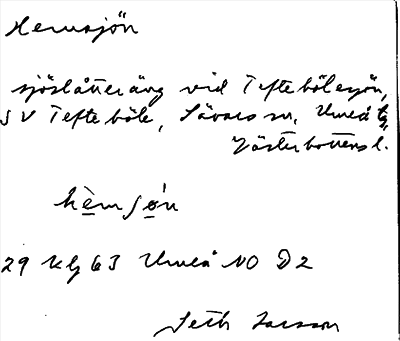 Hemsjön
sjöslåtteräng vid Teftebölesjön,
SV Tefteböle, Sävars sn, Umeå tg,
Västerbottens l.
hèmʃø̀n
29 Kbl 63 Umeå NO D2
Seth Larsson